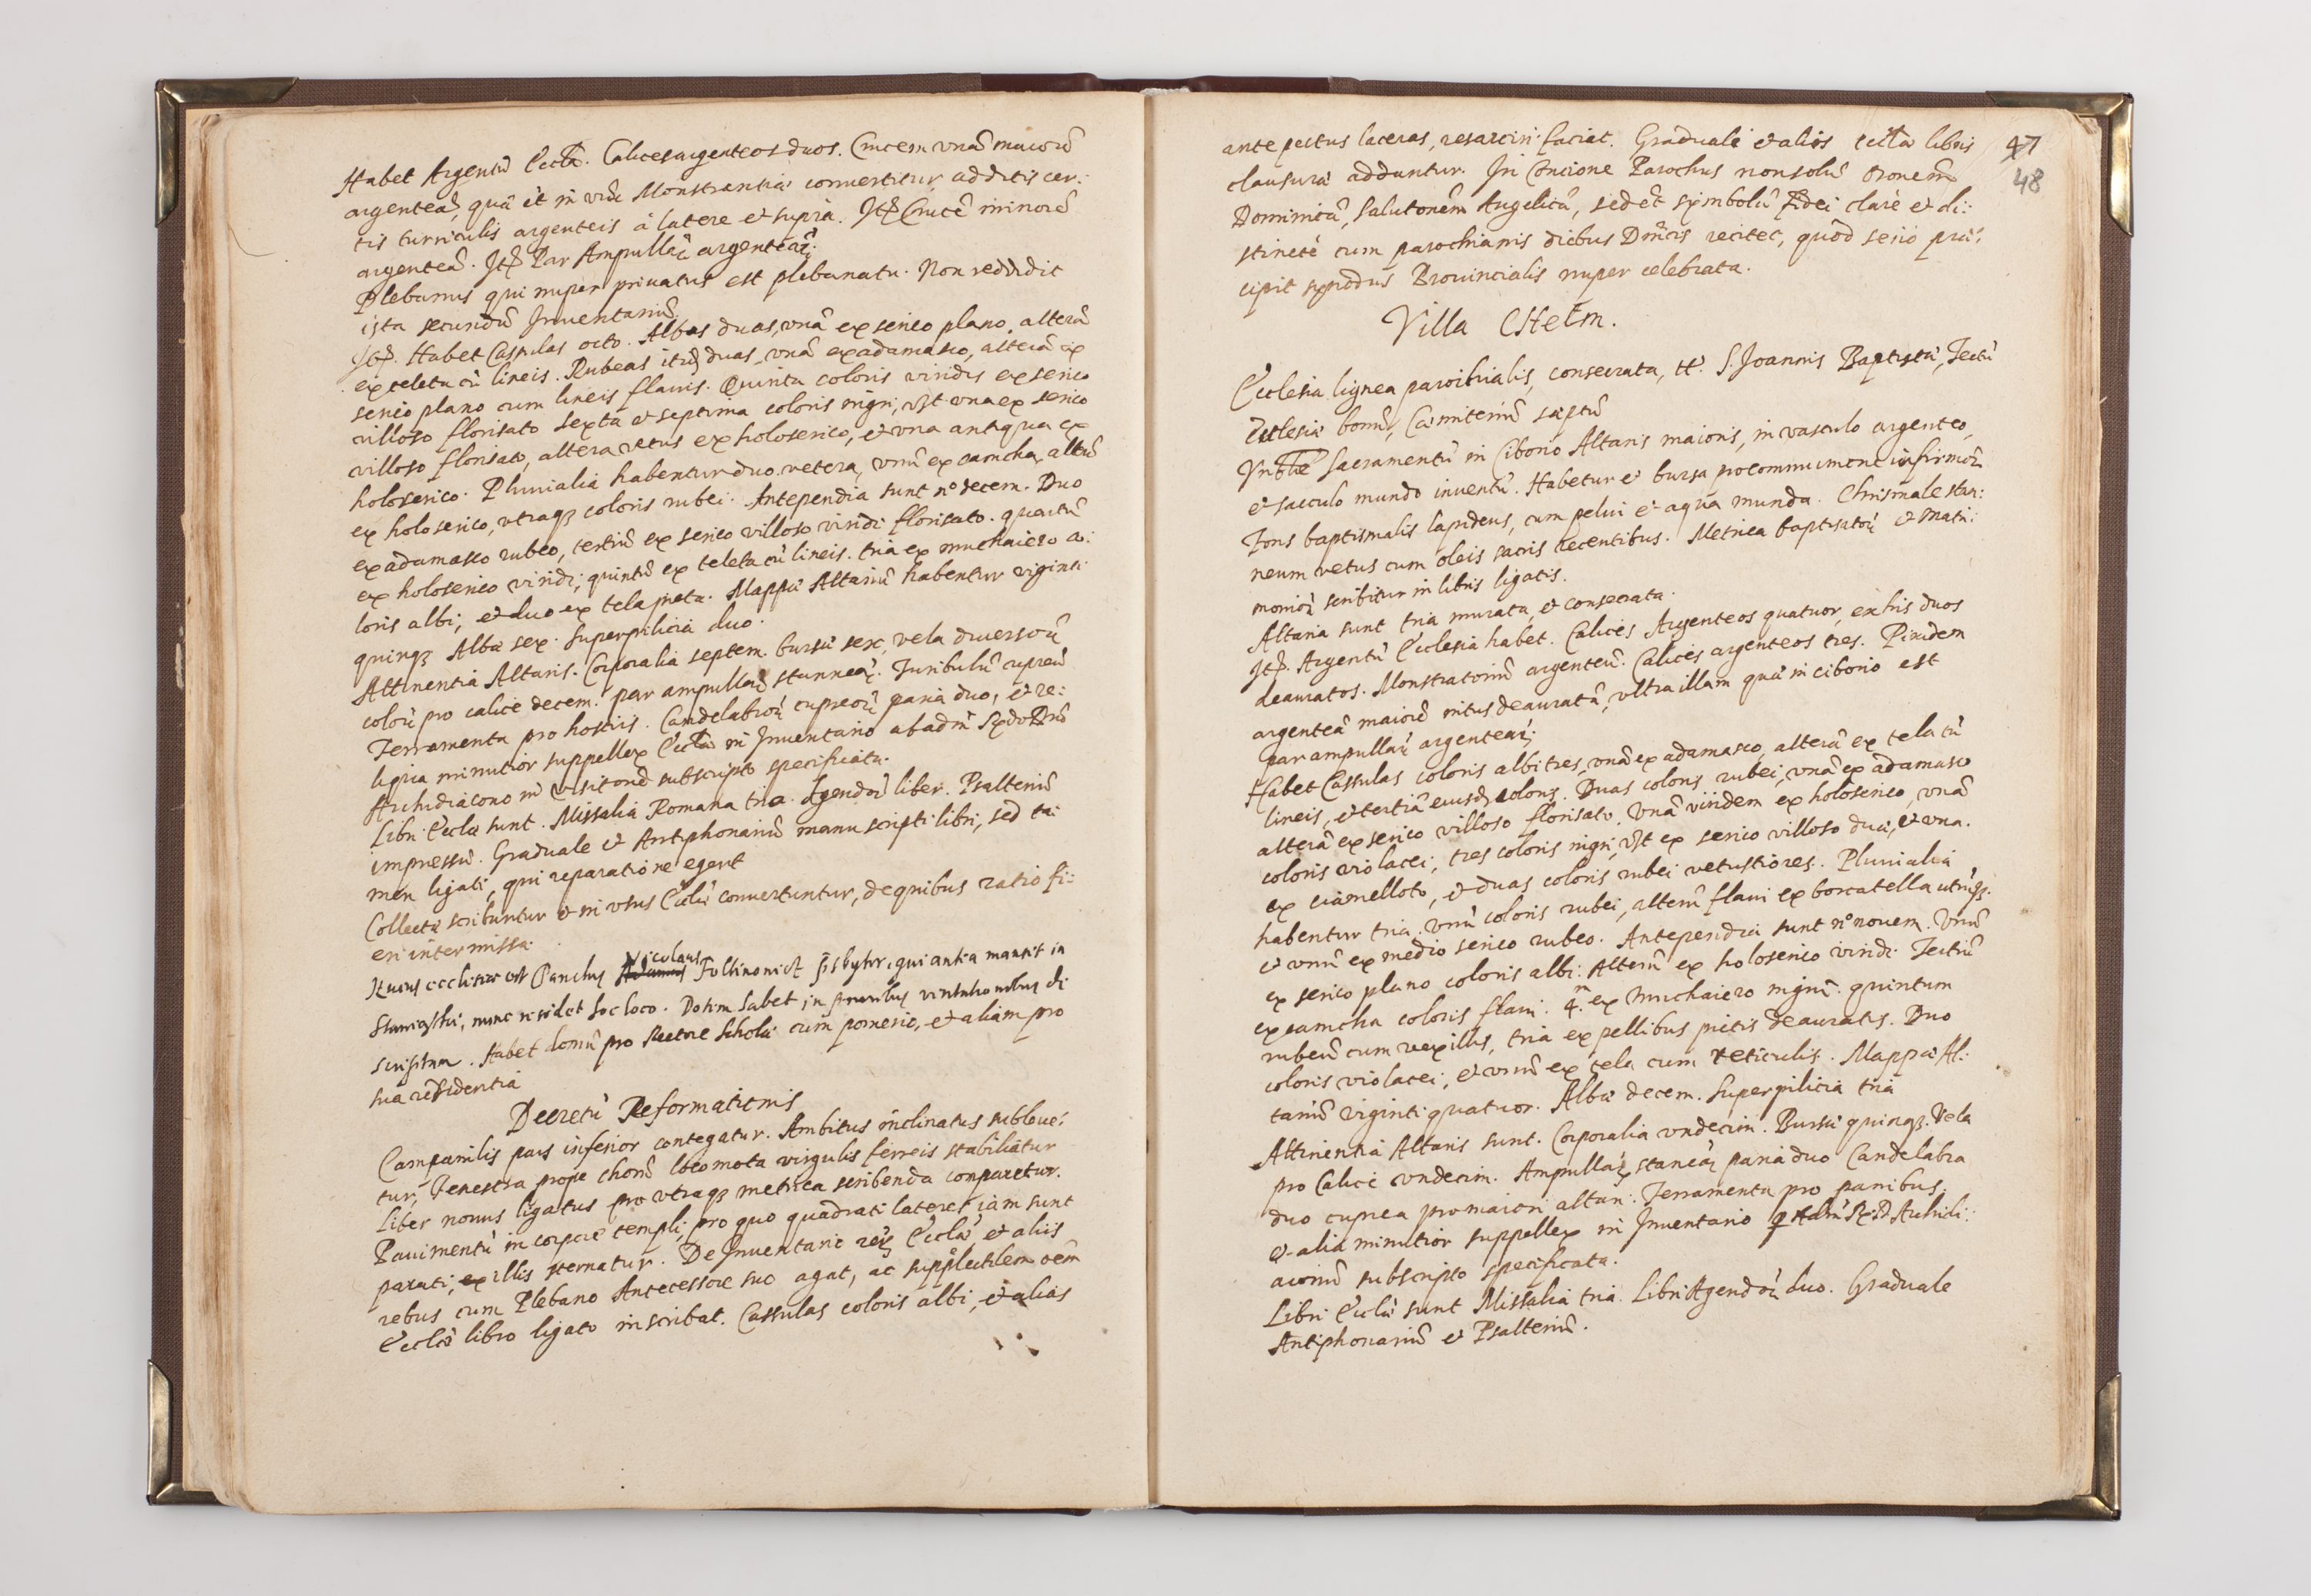 Habet Argentū Eccla. Calices argenteos duos. Crucem unā maiorē
argenteā, quā et in usū Monstrantiæ convertitur additis cer:
tis turriculis argenteis à latere et supra. Itē Crucē minorē
argenteā. Itē Par Ampullarū argentearū.
Plebanus qui nuper privatus est plebanatu. Non reddidit
ista secundū Inventariū.
Itē. Habet Casulas octo. Albas duas, unā ex serico plano, alterā
ex teleta cū lineis. Rubeas itē duas, unā ex adamasco, alterā ex
serico plano cum lineis flavis. Quinta coloris viridis ex serico
villoso florisato sexta et septima coloris nigri, vt una ex serico
villoso florisato, altera vetus ex holoserico, et una antiqua ex
holoserico. Pluvialia habentur duo vetera, unū ex camcha, alterū
ex holoserico, utraq3 coloris rubei. Antependia sunt nº decem. Duo
ex adamasco rubeo, tertiū ex serico villoso viridi florisato. quartū
ex holoserico viridi, quintū ex teleta cū lineis. tria ex muchaiero co:
loris albi, et duo ex tela picta. Mappæ Altariū habentur viginti
quinq3 Albæ sex. Superpilicia duo.
Attinentia Altaris. Corporalia septem. bursæ sex, vela diversorū
colorū pro calice decem. par ampullarū stannearū. Turibulū cupreū
Ferramenta pro hostiis. Candelabrorū cupreorū paria duo, et re:
liqua minutior suppellex Ecclæ in Inventario ab adm Rdo Dno
Archidiacono in visitone subscripto specificata.
Libri Ecclæ sunt. Missalia Romana tria. Agendorū liber. Psalteriū
impressū. Graduale et Antiphonariū manuscripti libri, sed ta:
men ligati, qui reparatione egent
Collectæ scribuntur et in usus Ecclæ convertuntur, de quibus ratio fi:
eri intermissa.
Huius ecclisiæ est Parochus Nicolaus Psbyter, qui antea mansit in
nunc residet hoc loco. Dotem habet in
Habet domū pro Rectore Scholæ cum pomerio, et aliam pro
sua residentia
Decretū Reformationis
Campanilis pars inferior contegatur. Ambitus inclinatus subleve:
tur, Fenestra prope chorū loco mota virgulis ferreis stabiliatur
Liber novus ligatus pro utraq3 metrica scribenda comparetur.
Pavimentū in corpore templi, pro quo quadrati lateres iam sunt
parati, ex illis sternatur. De Inventario rerū Ecclæ, et aliis
rebus cum Plebano Antecessore suo agat, ac suppllectilem oēm
Ecclæ libro ligato inscribat. Cassulas coloris albi, et alias
47
48
ante pectus laceras, resarciri faciat. Graduali et aliis Ecclæ libris
clausuræ addantur. In Concione Parochus non solū Oronem
Dominicā, Salutonēm Angelicā, sed et Symbolū Fidei clarè et di:
stinctè cum parochianis diebus Dnicis recitet, quod serio præ:
cipit synodus Provincialis nuper celebrata.
Villa CHełm.
Ecclesia lignea parochialis, consecrata, tt. S. Joannis Baptistæ, Tectū
Ecclesiæ bonū, Cæmiteriū sæptū
Vnble Sacramentū in Ciborio Altaris maioris, in vasculo argenteo,
et sacculo mundo inventū. Habetur et bursa pro communione infirmorū
Fons baptismalis lapideus, cum pelvi et aqua munda. Chrismale stan:
neum vetus cum oleis sacris recentibus. Metrica baptisatorū et Matri:
moniorū scribitur in libris ligatis.
Altaria sunt tria murata, et consecrata.
Itē. Argentū Ecclesia habet. Calices Argenteos quatuor, ex his duos
deauratos. Monstratoriū argenteū. Calices argenteos tres. Pixidem
argenteā maiorē intus deauratā, ultra illam quæ in ciborio est
par ampullarū argentearū.
Habet Cassulas coloris albi tres, unā ex adamasco, alterā ex tela cū
lineis, et tertiā eiusdē coloris. Duas coloris rubei, unā ex adamasco
alterā ex serico villoso florisato. Unā viridem ex holoserico, unā
coloris violacei, tres coloris nigri, vt ex serico villoso duæ, et una.
ex ciamelloto, et duas coloris rubei vetustiores. Pluvialia
habentur tria. unū coloris rubei, alterū flavi ex borcatella utrūq3.
et unū ex medio serico rubeo. Antependia sunt nº novem. Unū
ex serico plano coloris albi. Alterū ex holoserico viridi Tertiū
ex camcha coloris flavi. 4m ex Muchaiero nigrū. quintum
rubeū cum vexillis, tria ex pellibus pictis deauratis. Duo
coloris violacei, et unū ex tela cum reticulis. Mappæ Al:
tariū viginti quatuor. Albæ decem. Superpilicia tria
Attinentia Altaris sunt. Corporalia undecim. Bursæ quinq3. Vela
pro Calice undecim. Ampullarū stanearū paria duo Candelabra
duo cuprea pro maiori altari. Ferramenta pro panibus.
et alia minutior suppellex in Inventario p Adm R: D Archidi:
aconū subscripto specificata.
Libri Ecclæ sunt Missalia tria. Libri Agendorū duo. Graduale
Antiphonariū et Psalteriū.